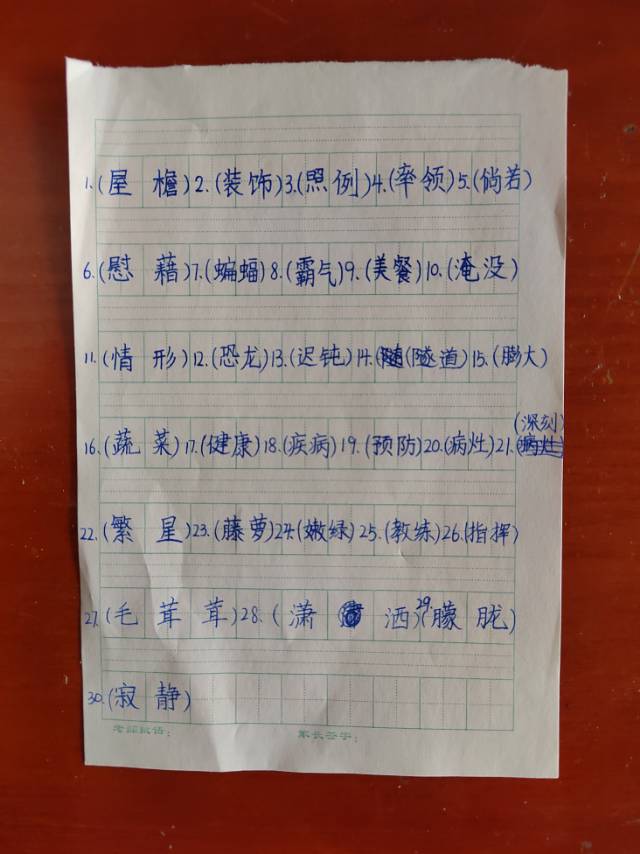 1.(屋檐)2.(装饰)3.(照例)4.(率领)5.(倘若)
6.(慰藉)7.(蝙蝠)8.(霸气)9.(美餐)10.(淹没)
11.(情形)12.(恐龙)13.(迟钝)14.(隧道)15.(膨大)
(深刻)
16.(蔬菜)17.(健康)18.(疾病)19.(预防)20.(病灶)21.(病灶)
22.(繁星)23.(藤萝)24.(嫩绿)25.(教练)26.(指挥)
27.(毛茸茸)28.(潇洒)29.(朦胧)
30.(寂静)
老师评语: 家长签字: